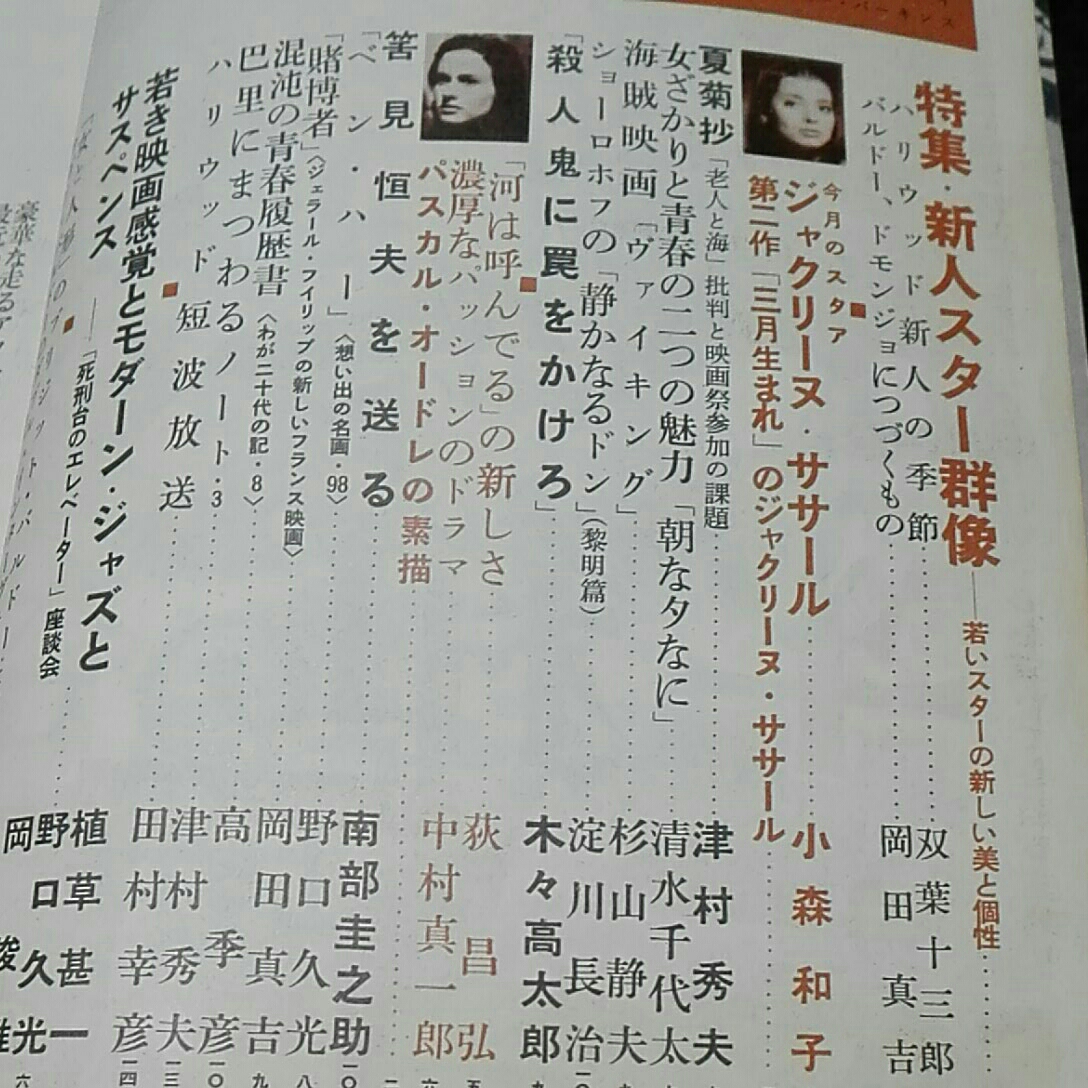 パーキンス
特集・新人スター群像――若いスターの新しい美と個性
ハリウッド新人の季節 双葉十三郎
バルドー、ドモンジョにつづくもの 岡田真吉
今月のスタア
ジャクリーヌ・ササール 小森和子
第二作「三月生まれ」のジャクリーヌ・ササール
夏菊抄「老人と海」批判と映画祭参加の課題 津村秀夫
女ざかりと青春の二つの魅力「朝な夕なに」 清水千代太
海賊映画「ヴァイキング」 杉山静夫
ショーロホフの「静かなるドン」(黎明篇) 淀川長治
「殺人鬼に罠をかけろ」 木々高太郎
「河は呼んでる」の新しさ 荻昌弘
濃厚なパッションのドラマ 中村真一郎
パスカル・オードレの素描
筈見恒夫を送る 南部圭之助
「ベン・ハー」〈想い出の名画・98〉 野口久光
「賭博者」〈ジェラール・フイリップの新しいフランス映画〉 岡田真吉
混沌の青春履歴書〈わが二十代の記・8〉 高季彦
巴里にまつわるノート・3 津村秀夫
ハリウッド短波放送 田村幸彦
若き映画感覚とモダーン・ジャズと
サスペンス――「死刑台のエレベーター」座談会
植草甚一
野口久光
岡俊雄